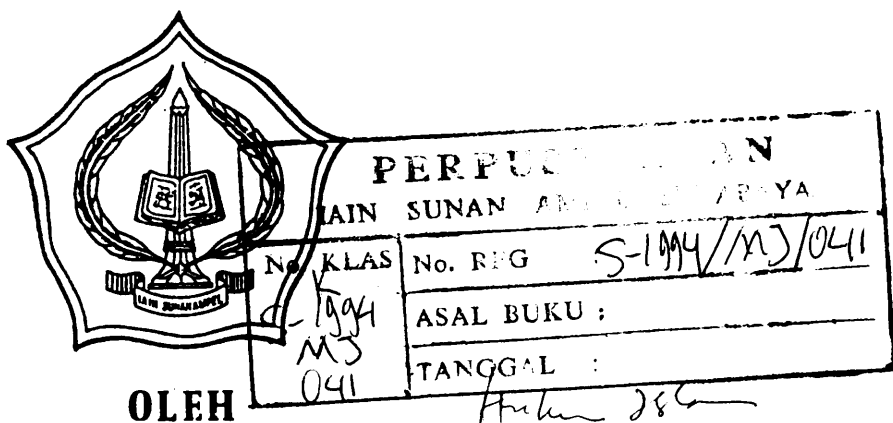 IAIN SUNAN AMPEL
PERPUS
IAIN SUNAN
No. KLAS
K
S-1994
MJ
041
No. REG S-1994/MJ/041
ASAL BUKU :
TANGGAL :
OLEH